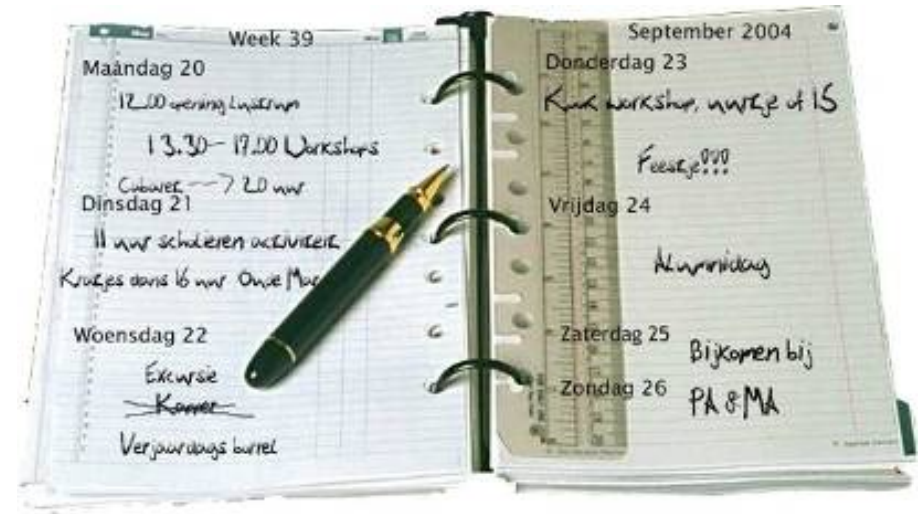 Week 39
Maandag 20
12.00 opening Lustrum
13.30 - 17.00 Workshops
Cabaret --> 20 uur
Dinsdag 21
11 uur scholieren activiteit
16 uur
Woensdag 22
Excursie
Verjaardags borrel
September 2004
Donderdag 23
workshop, uurtje of 15
Feestje!!!
Vrijdag 24
Alumnidag
Zaterdag 25
Bijkomen bij
Zondag 26
PA & MA